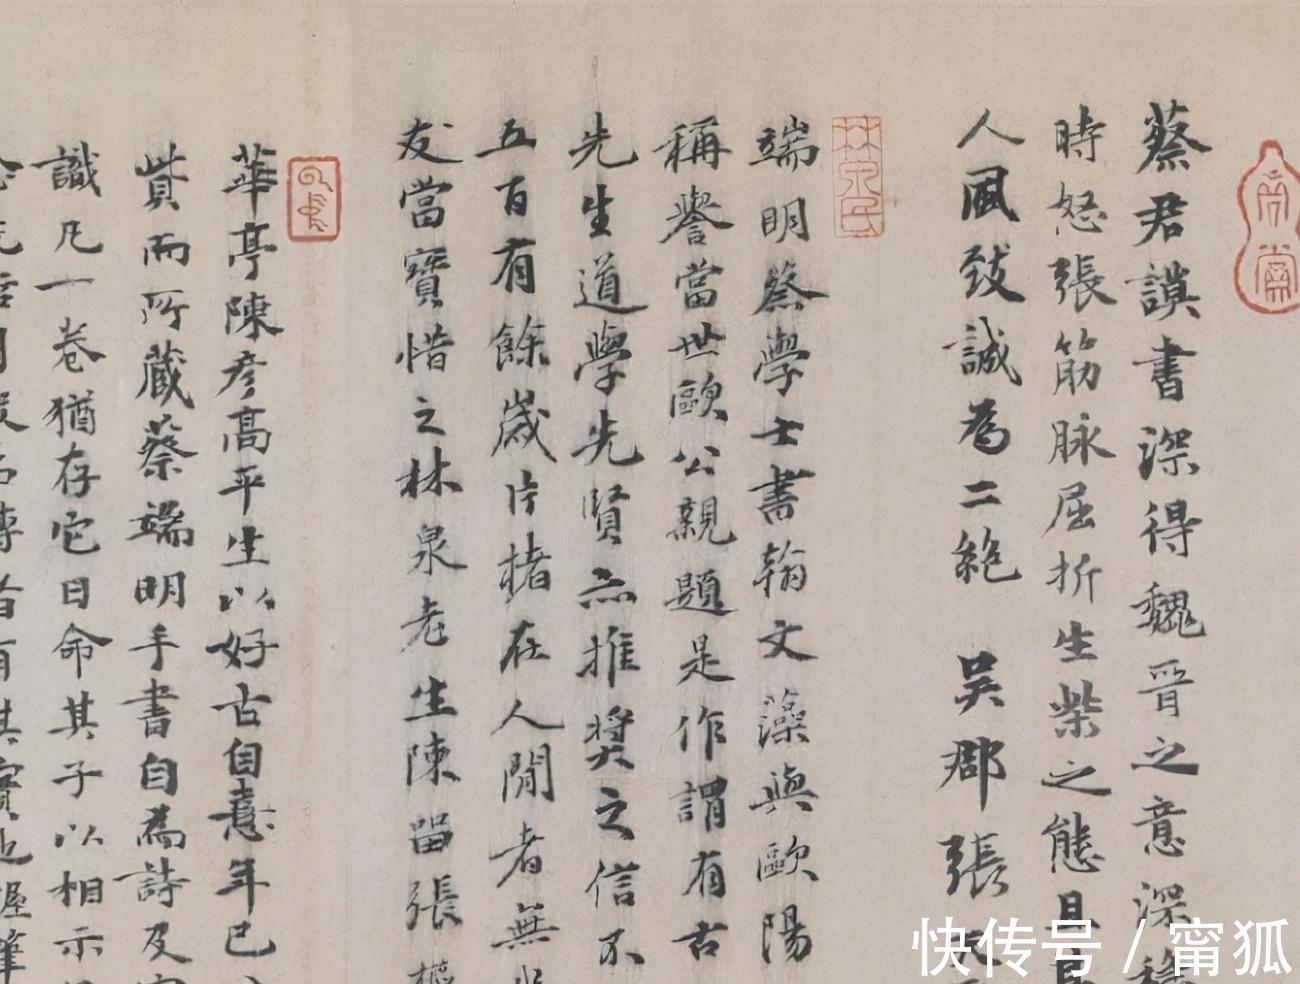 蔡君謨書深得魏晉之意深
時怒張筋脉屈折生柴之態且
人風致誠為二絶 吴郡張
端明蔡學士書翰文藻與歐陽
稱譽當世歐公親題是作謂有古
先生道學先賢亦推奬之信不
五百有餘歲片楮在人間者無
友當寶惜之林泉老生陳留張樞
華亭陳彦高平生以好古自憙年已
貲而所藏蔡端明手書自為詩及
識凡一卷猶存它日命其子以相示
林泉氏
快传号 / 甯狐